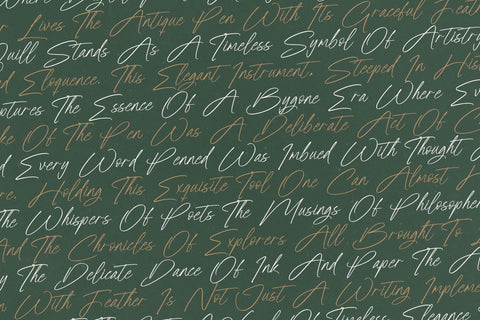 Lives The Antique Pen With Its Graceful Feather
Quill Stands As A Timeless Symbol Of Artistry
d Eloquence. This Elegant Instrument, Steeped In His
ptures The Essence Of A Bygone Era Where Ev
ke Of The Pen Was A Deliberate Act Of C
d Every Word Penned Was Imbued With Thought A
re. Holding This Exquisite Tool One Can Almost H
The Whispers Of Poets The Musings Of Philosopher
And The Chronicles Of Explorers All Brought To L
y The Delicate Dance Of Ink And Paper The A
n With Feather Is Not Just A Writing Impleme
Of Timeless Elegance